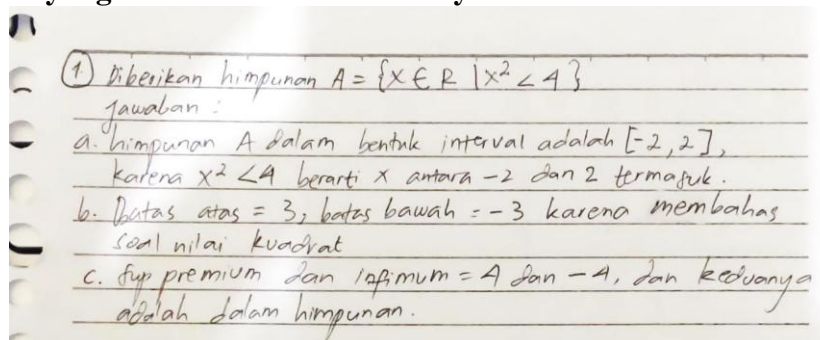 1. Diberikan himpunan A = {x ∈ R | x² < 4}
Jawaban :
a. himpunan A dalam bentuk interval adalah [-2, 2],
karena x² < 4 berarti x antara -2 dan 2 termasuk.
b. Batas atas = 3, batas bawah = -3 karena membahas
soal nilai kuadrat
c. Suppremium dan infimum = 4 dan -4, dan keduanya
adalah dalam himpunan.